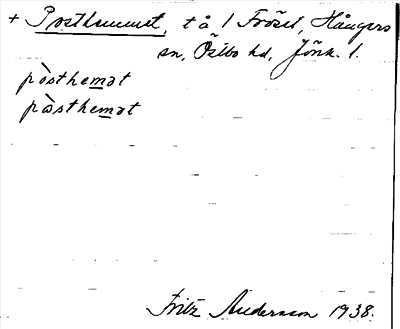 + Posthemmet, t å 1 Fröset, Hångers
sn, Östbo hd, Jönk. l.
pòsthemət
pàsthemət
Fritz Anderson 1938.